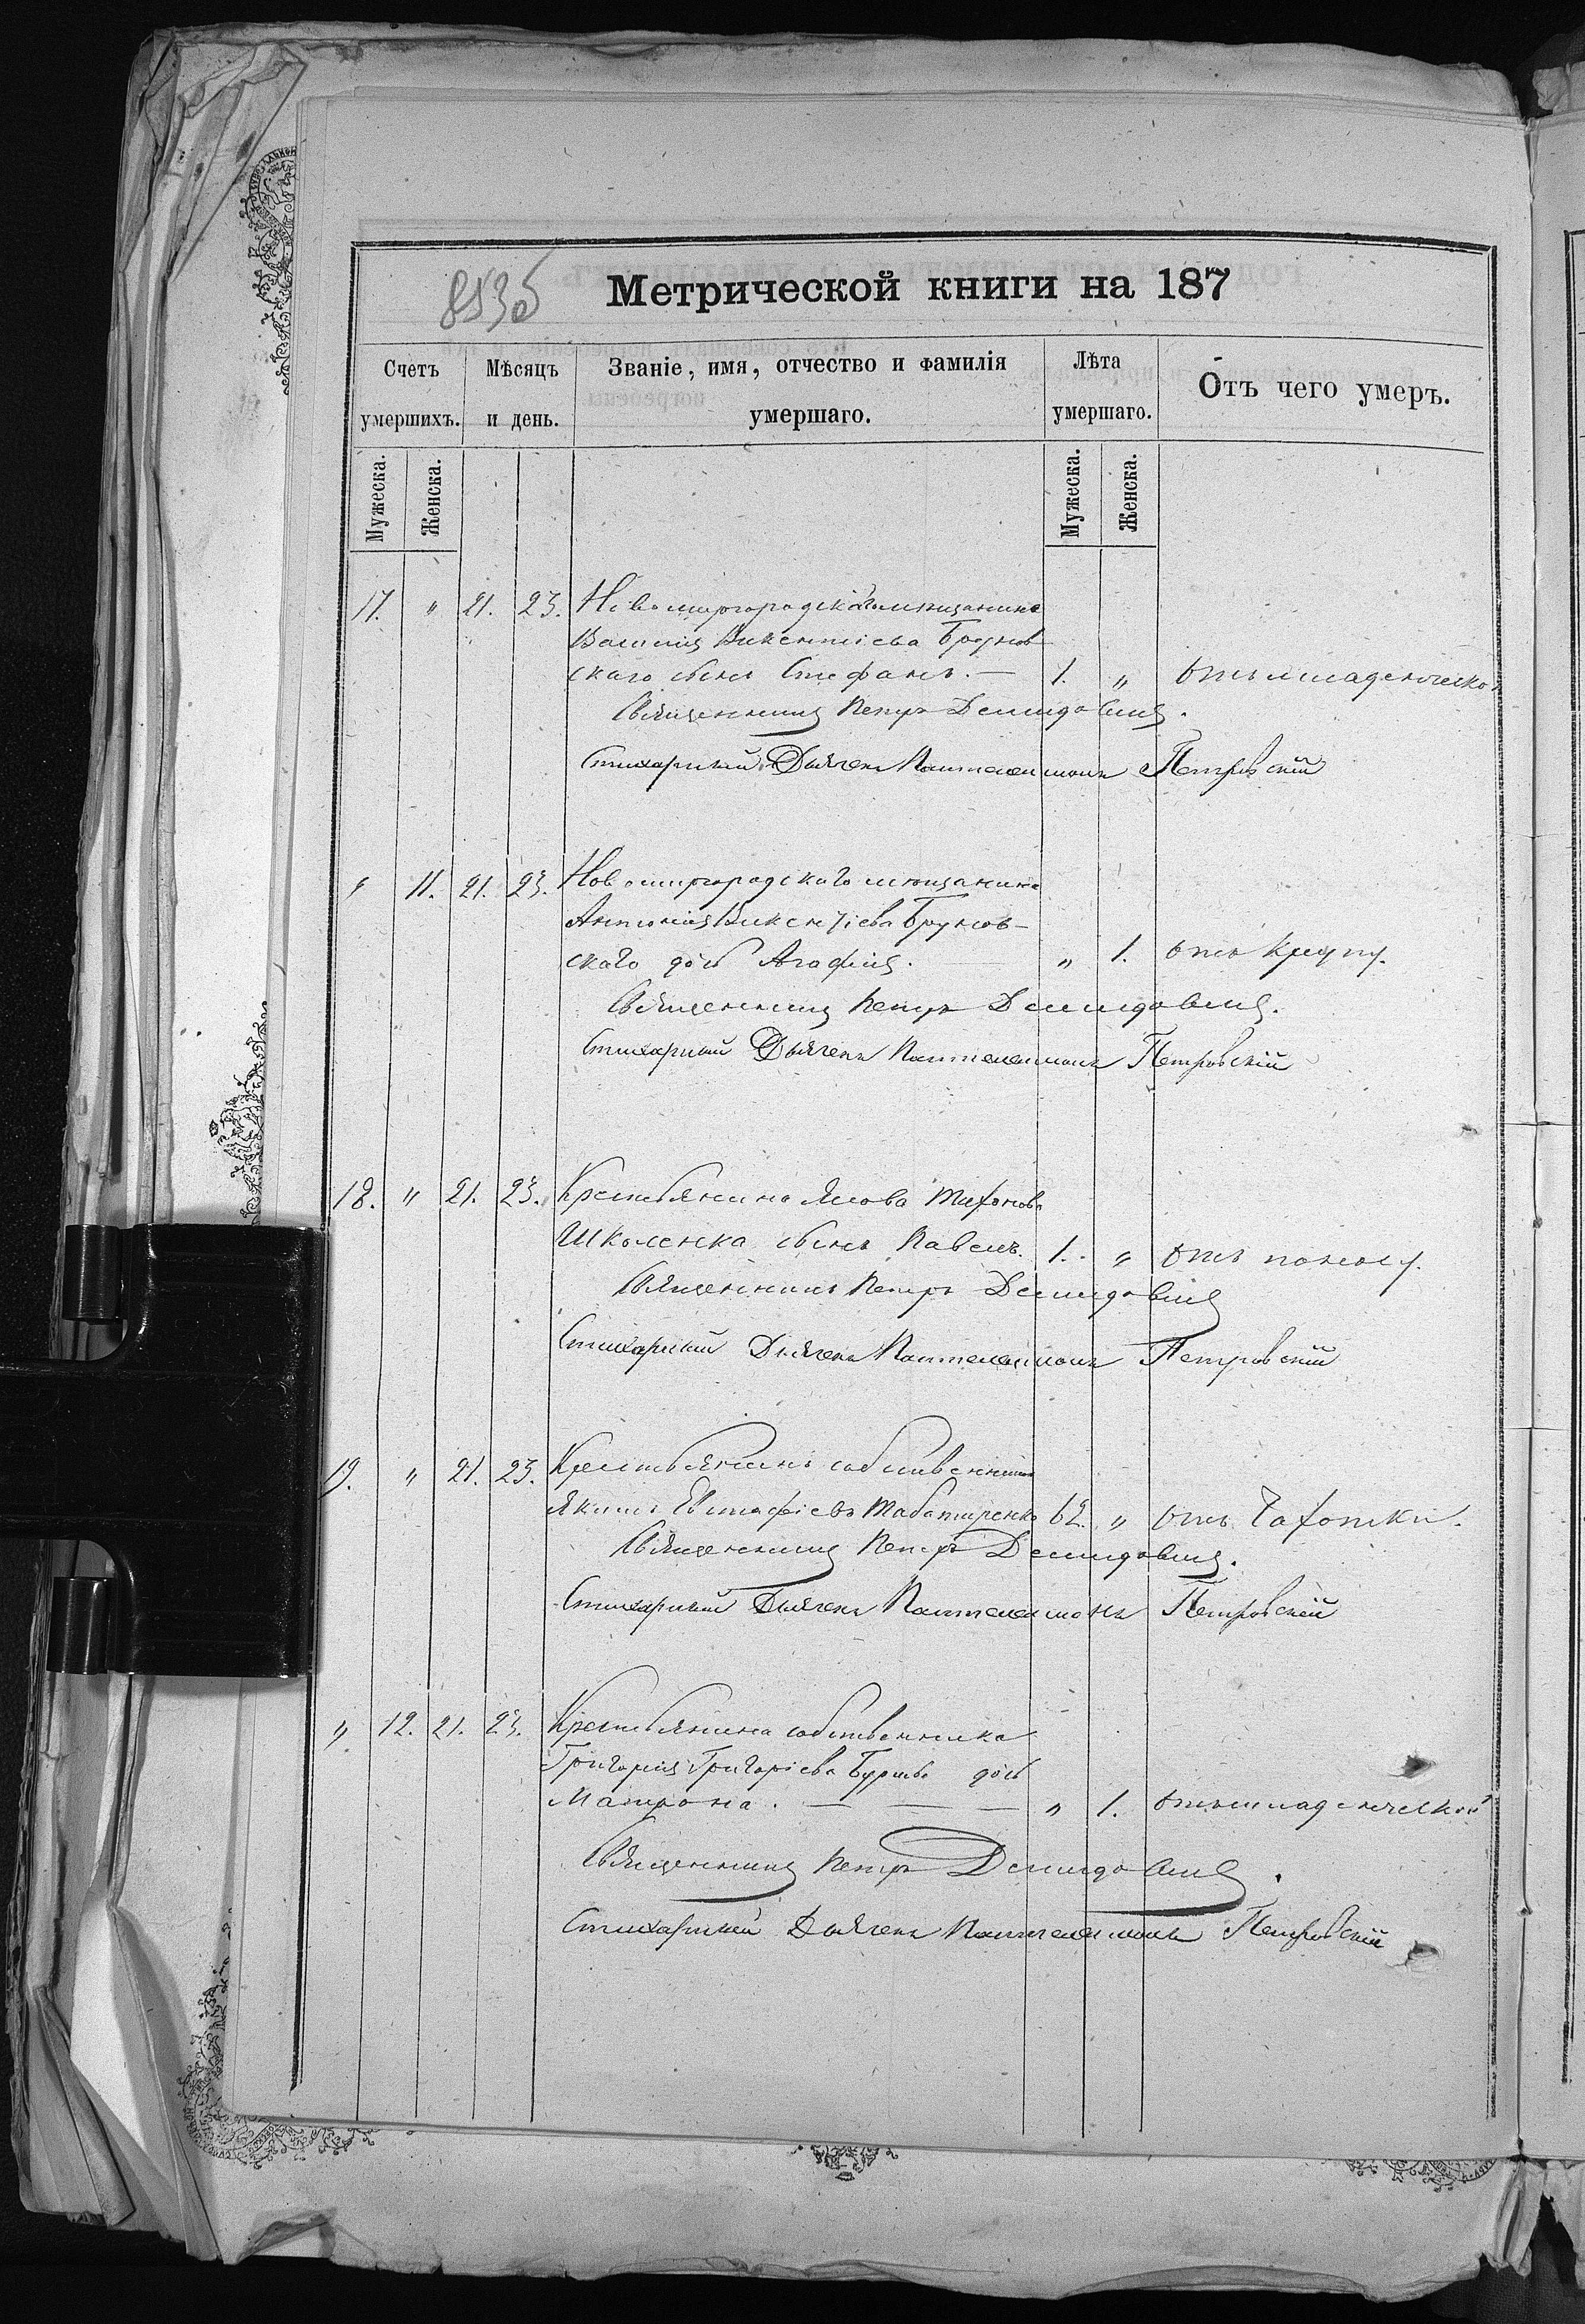 853б
Метрической книги на 187
Счетъ умершихъ.
Мѣсяцъ и день.
Званіе, имя, отчество и фамилія умершаго.
Лѣта умершаго.
Отъ чего умеръ.
Мужеска. Женска. Мужеска. Женска.
17. " 21. 23. Новомиргородскаго мещанина
Василія Викентіева Брунов
скаго сынъ Стефанъ. — 1. " отъ младенческой
Священникъ Петръ Демидовичъ.
Стихарный Дьячекъ Пантелеимонъ Петровскій
" 11. 21. 23. Новомиргородскаго мещанина
Антонія Викентіева Брунов-
скаго дочь Агафія. " 1. отъ крупу.
Священникъ Петръ Демидовичъ.
Стихарный Дьячекъ Пантелеимонъ Петровскій
18. " 21. 23. Крестьянина Якова Тихонова
Школенка сынъ Павелъ. 1. " отъ поносу.
Священникъ Петръ Демидовичъ
Стихарный Дьячекъ Пантелеимонъ Петровскій
19. " 21. 23. Крестьянинъ собственникъ
Якимъ Евстафіевъ 62. " отъ Чахотки.
Священникъ Петръ Демидовичъ.
Стихарный Дьячекъ Пантелеимонъ Петровскій
" 12. 21. 23. Крестьянина собственника
Григорія Григоріева дочь
Матрона. — — — " 1. отъ младенческой
Священникъ Петръ Демидовичъ.
Стихарный Дьячекъ Пантелеимонъ Петровскій